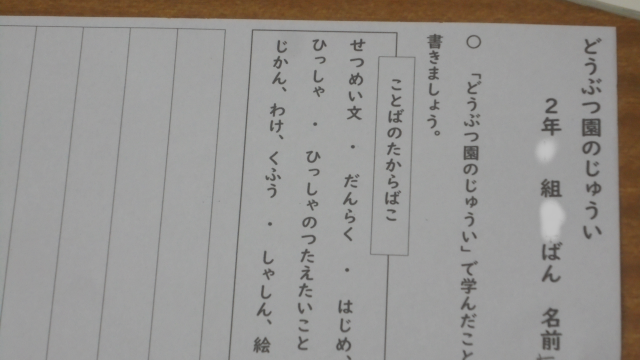 どうぶつ園のじゅうい
２年 組 ばん 名前
〇 「どうぶつ園のじゅうい」で学んだこと
書きましょう。
ことばのたからばこ
せつめい文 ・ だんらく ・ はじめ、
ひっしゃ ・ ひっしゃのつたえたいこと
じかん、わけ、くふう ・ しゃしん、絵